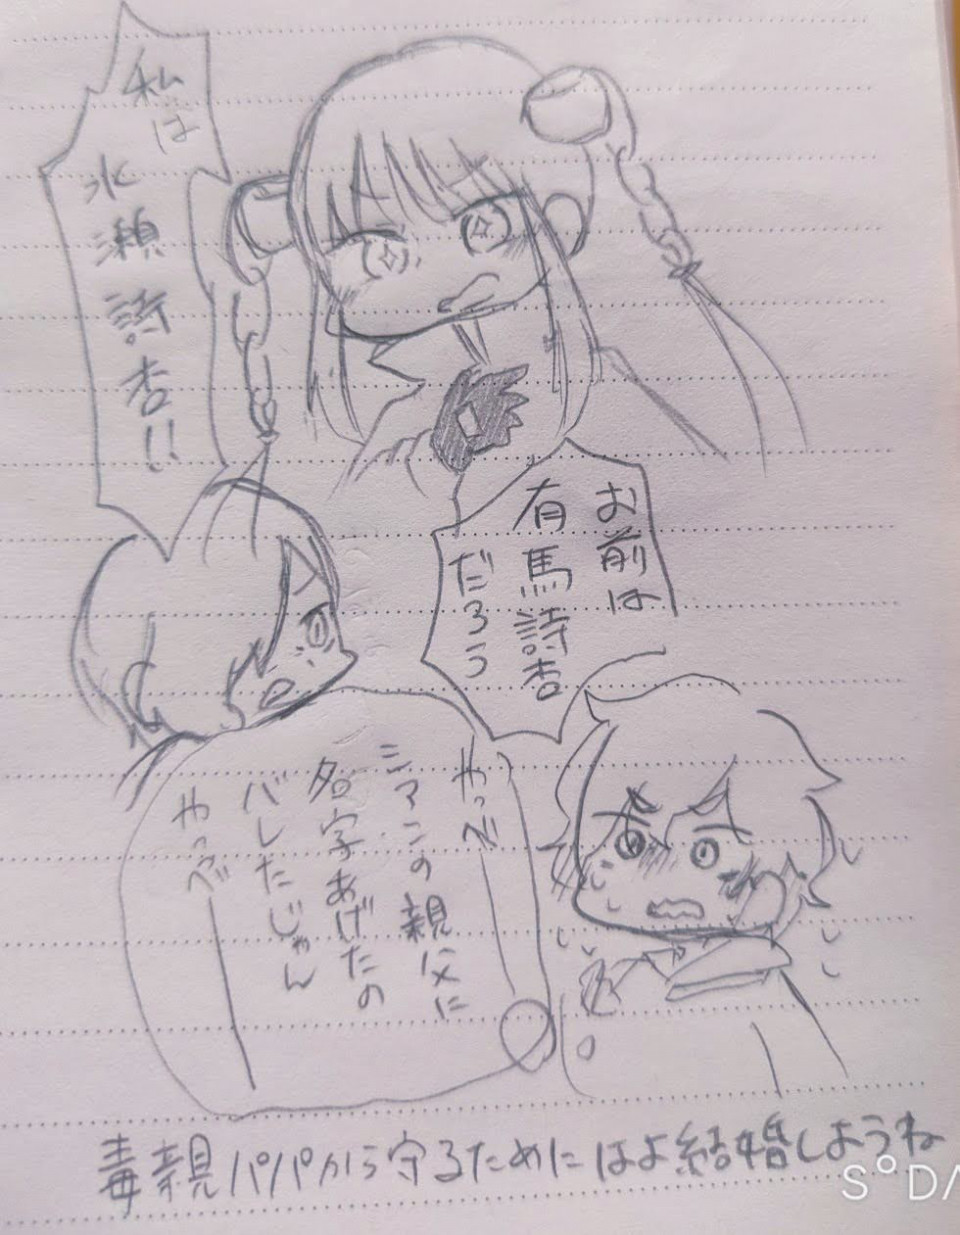 私は
水瀬詩杏!!
お前は
有馬詩杏
だろう
やっべ
シアンの親父に
名字あげたの
バレたじゃん
やっべー
毒親パパから守るためにはよ結婚しようね